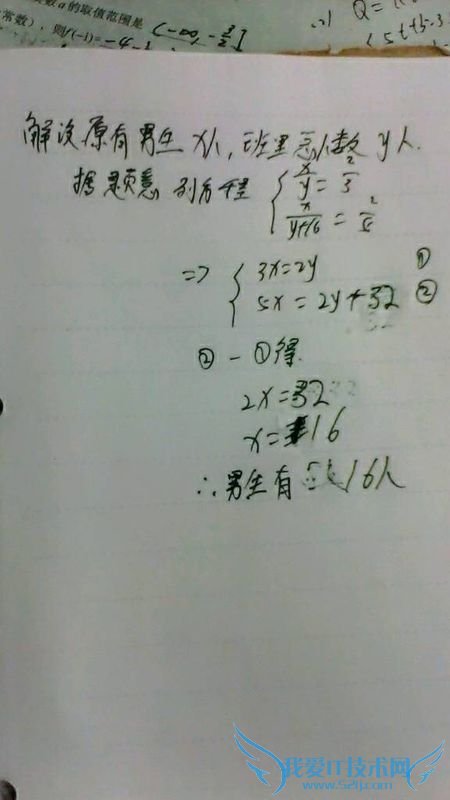 数a的取值范围是 (-∞, -3/2]
常数),则f(-1)=-4
Q=
(5t+15-3
解设原有男生x人,班里总人数y人.
据题意 列方程 { x/y = 2/3
x/(y+16) = 2/5
=> { 3x=2y ①
5x=2y+32 ②
② - ①得.
2x=32
x=16
∴男生有 16人
我爱IT技术网
www.52ij.com